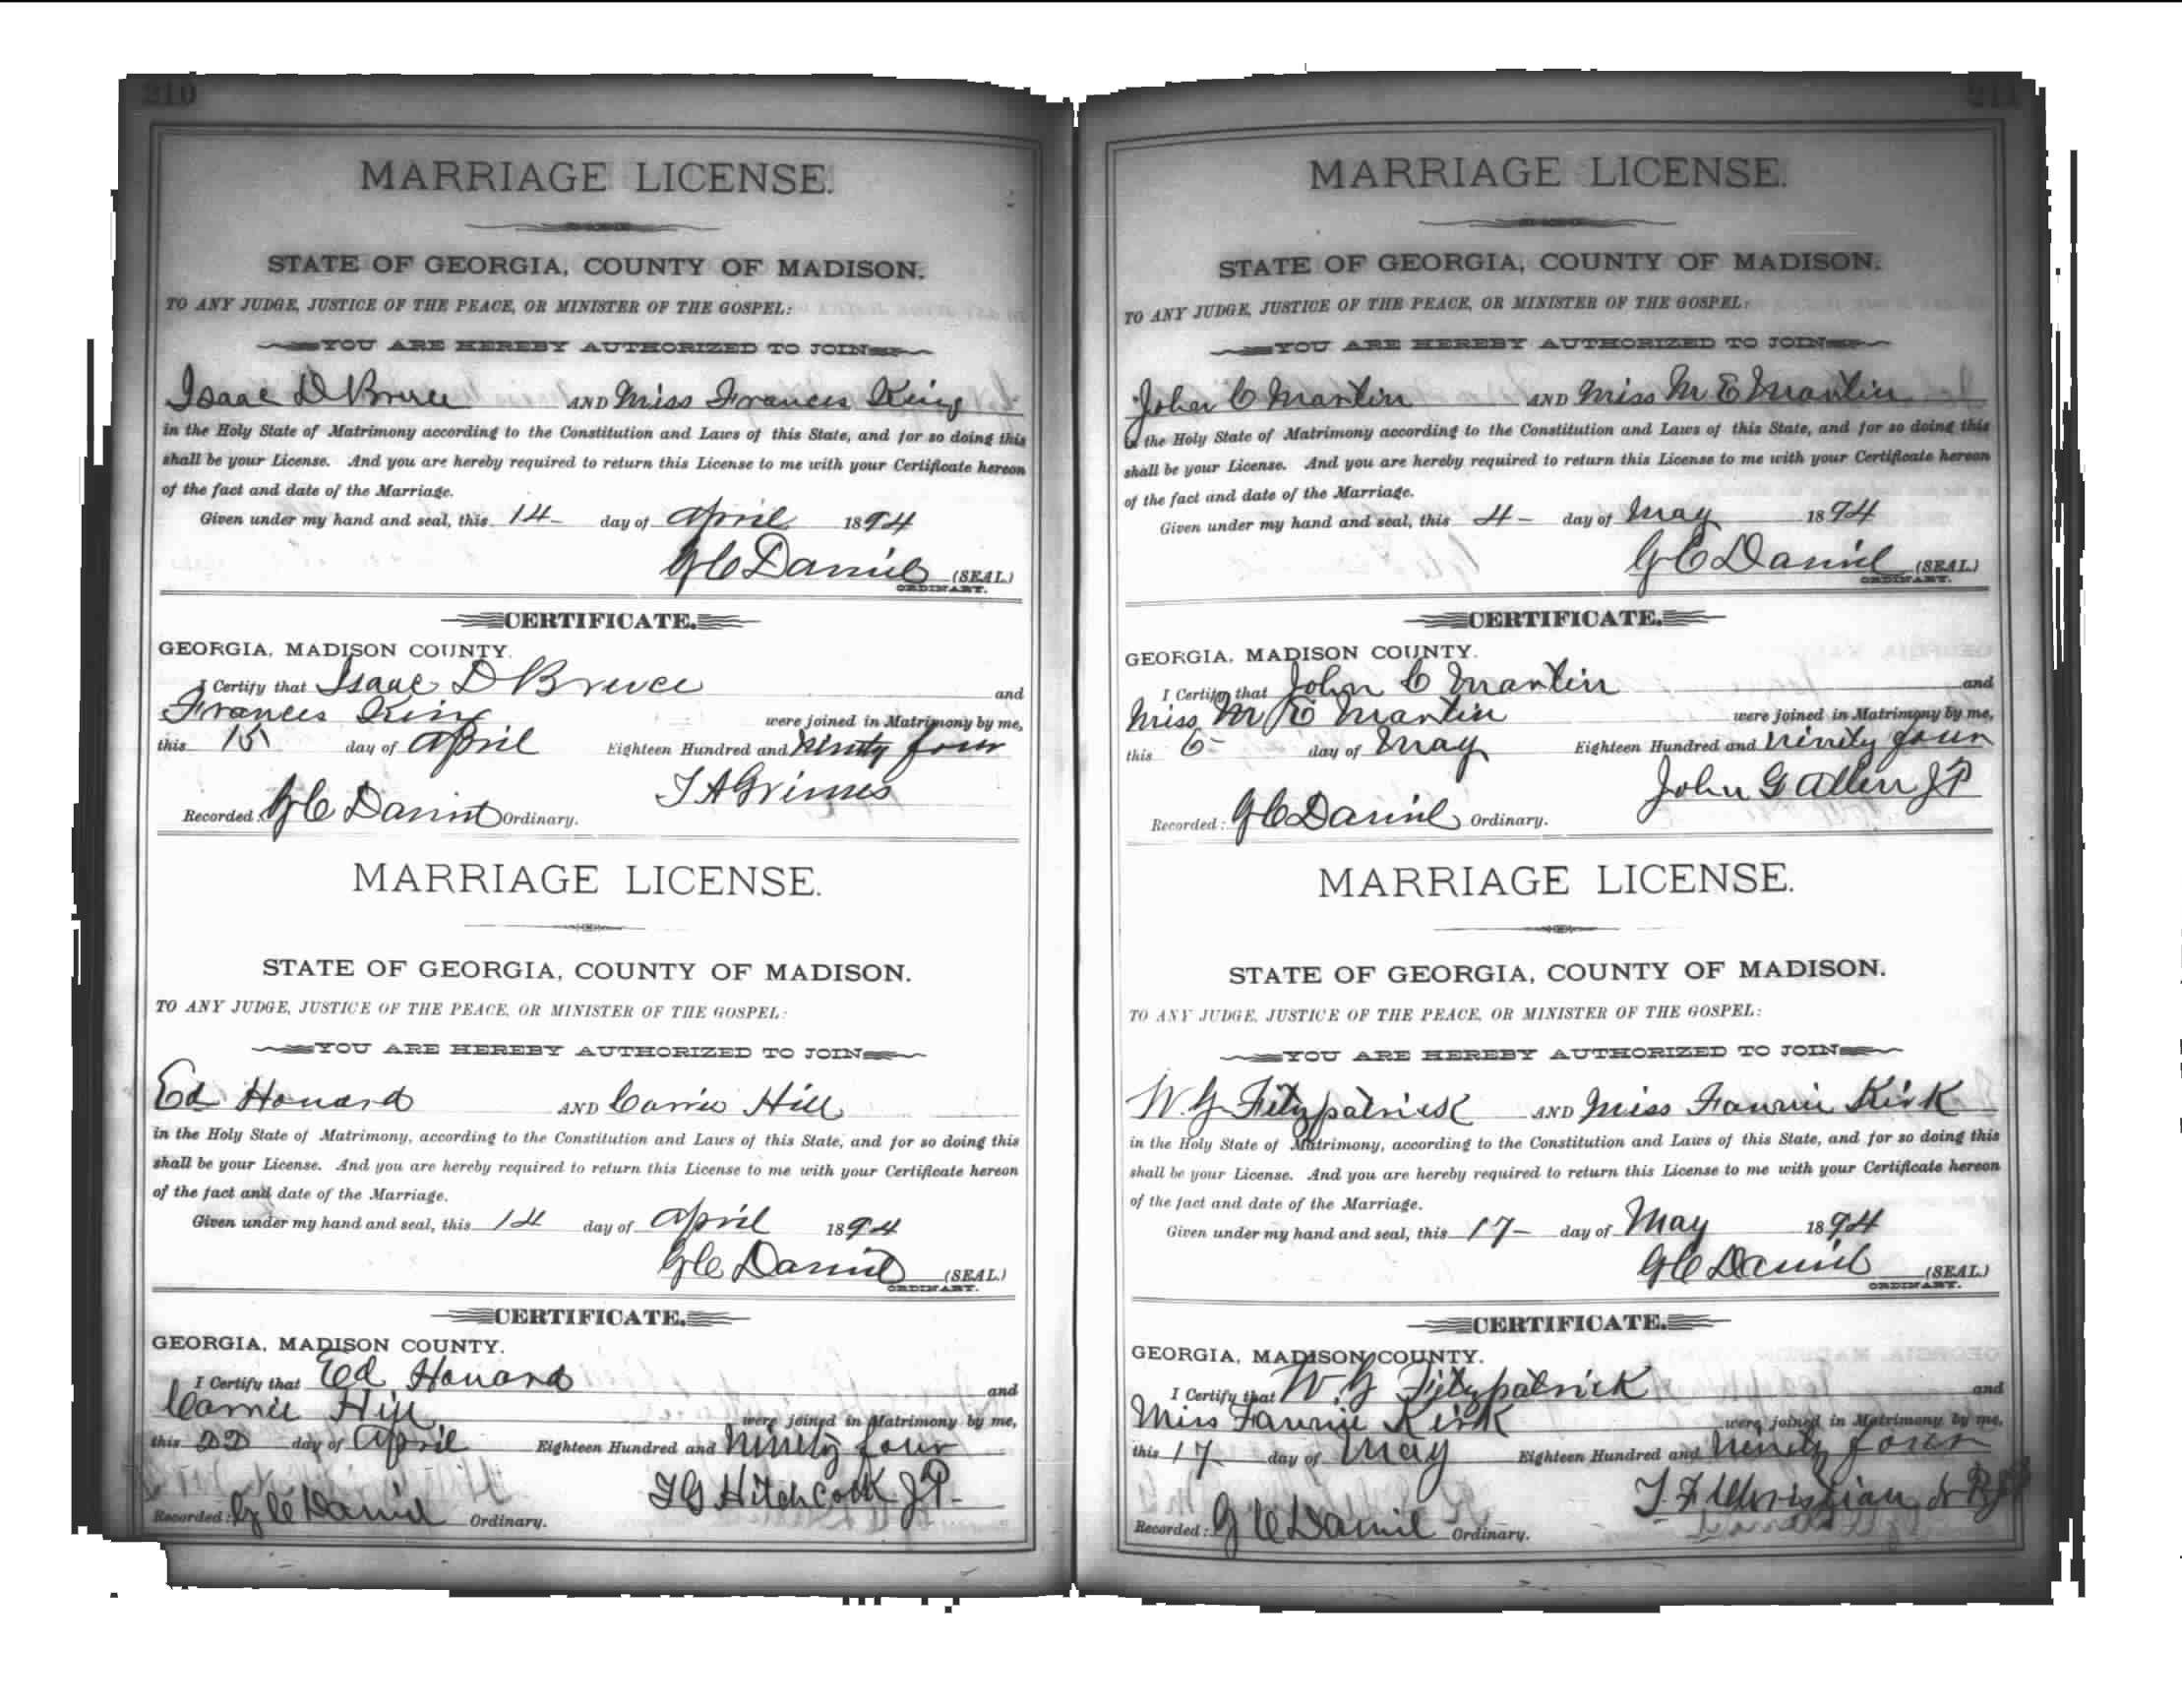 210
MARRIAGE LICENSE.
STATE OF GEORGIA, COUNTY OF MADISON.
TO ANY JUDGE, JUSTICE OF THE PEACE, OR MINISTER OF THE GOSPEL:
YOU ARE HEREBY AUTHORIZED TO JOIN
Isaac D Bruce AND Miss Frances King
in the Holy State of Matrimony according to the Constitution and Laws of this State, and for so doing this
shall be your License. And you are hereby required to return this License to me with your Certificate hereon
of the fact and date of the Marriage.
Given under my hand and seal, this 14- day of April 1894
G C Daniel (SEAL.)
ORDINARY.
CERTIFICATE.
GEORGIA, MADISON COUNTY.
I Certify that Isaac D Bruce and
Frances King were joined in Matrimony by me,
this 15 day of April Eighteen Hundred and ninety four
T A Grimes
Recorded: G C Daniel Ordinary.
MARRIAGE LICENSE.
STATE OF GEORGIA, COUNTY OF MADISON.
TO ANY JUDGE, JUSTICE OF THE PEACE, OR MINISTER OF THE GOSPEL:
YOU ARE HEREBY AUTHORIZED TO JOIN
Ed Howard AND Carrie Hill
in the Holy State of Matrimony, according to the Constitution and Laws of this State, and for so doing this
shall be your License. And you are hereby required to return this License to me with your Certificate hereon
of the fact and date of the Marriage.
Given under my hand and seal, this 14 day of April 1894
G C Daniel (SEAL.)
ORDINARY.
CERTIFICATE.
GEORGIA, MADISON COUNTY.
I Certify that Ed Howard and
Carrie Hill were joined in Matrimony by me,
this 22 day of April Eighteen Hundred and ninety four
T G Hitchcock J P-
Recorded: G C Daniel Ordinary.
211
MARRIAGE LICENSE.
STATE OF GEORGIA, COUNTY OF MADISON.
TO ANY JUDGE, JUSTICE OF THE PEACE, OR MINISTER OF THE GOSPEL:
YOU ARE HEREBY AUTHORIZED TO JOIN
John C Martin AND Miss M E Martin
in the Holy State of Matrimony according to the Constitution and Laws of this State, and for so doing this
shall be your License. And you are hereby required to return this License to me with your Certificate hereon
of the fact and date of the Marriage.
Given under my hand and seal, this 4- day of May 1894
G C Daniel (SEAL.)
ORDINARY.
CERTIFICATE.
GEORGIA, MADISON COUNTY.
I Certify that John C Martin and
Miss M E Martin were joined in Matrimony by me,
this 6- day of May Eighteen Hundred and ninety four
John G Allen J P
Recorded: G C Daniel Ordinary.
MARRIAGE LICENSE.
STATE OF GEORGIA, COUNTY OF MADISON.
TO ANY JUDGE, JUSTICE OF THE PEACE, OR MINISTER OF THE GOSPEL:
YOU ARE HEREBY AUTHORIZED TO JOIN
W. G Fitzpatrick AND Miss Fannie Kirk
in the Holy State of Matrimony, according to the Constitution and Laws of this State, and for so doing this
shall be your License. And you are hereby required to return this License to me with your Certificate hereon
of the fact and date of the Marriage.
Given under my hand and seal, this 17- day of May 1894
G C Daniel (SEAL.)
ORDINARY.
CERTIFICATE.
GEORGIA, MADISON COUNTY.
I Certify that W. G Fitzpatrick and
Miss Fannie Kirk were joined in Matrimony by me,
this 17 day of May Eighteen Hundred and ninety four
T. F Christian
Recorded: G C Daniel Ordinary.